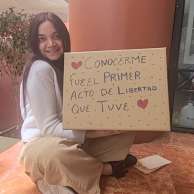 CONOCERME
FUE EL PRIMER
ACTO DE LIBERTAD
QUE TUVE